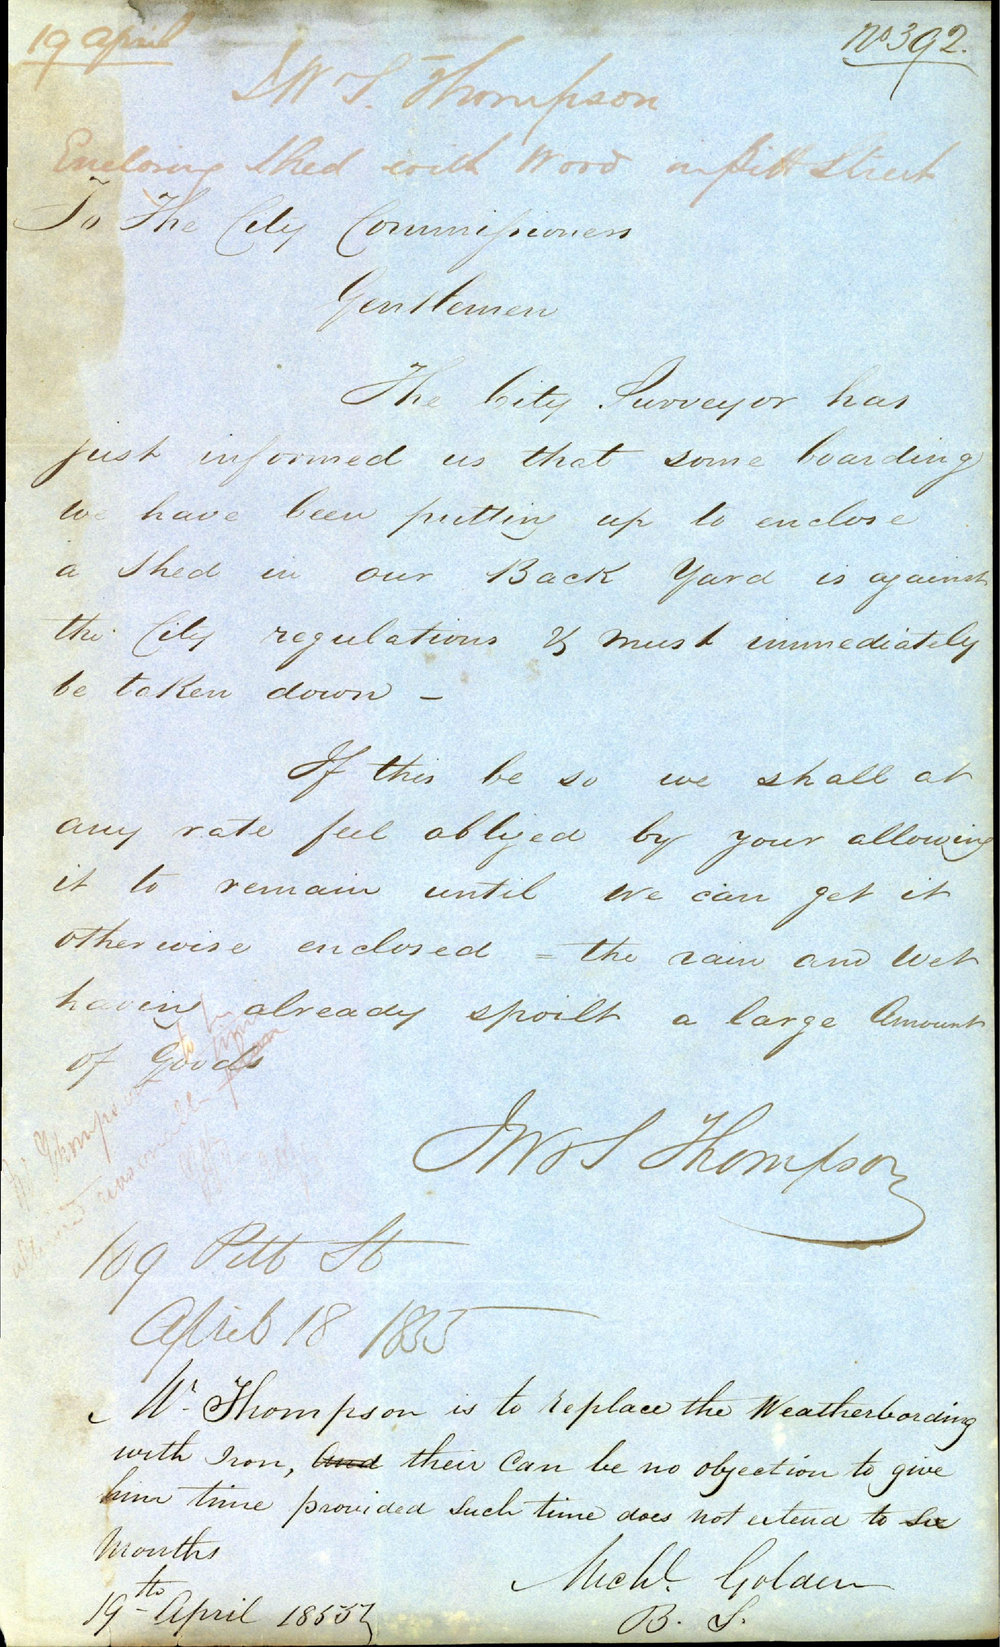 19 April
No 392.
JW S. Thompson
Enclosing Shed with Wood in Pitt Street
To The City Commissioners
Gentlemen
The City Surveyor has
just informed us that some boarding
we have been putting up to enclose
a Shed in our Back Yard is against
the City regulations & must immediately
be taken down –
If this be so we shall at
any rate feel obliged by your allowing
it to remain until We can get it
otherwise enclosed = the rain and Wet
having already spoilt a large Amount
of Goods
S Thompson
Mr Thompson
109 Pitt St
April 18 1855
Mr. Thompson is to replace the Weatherbording
with Iron, and their Can be no objection to give
him time provided Such time does not extend to Six
Months
Michl. Golden
B. S.
19th April 1855